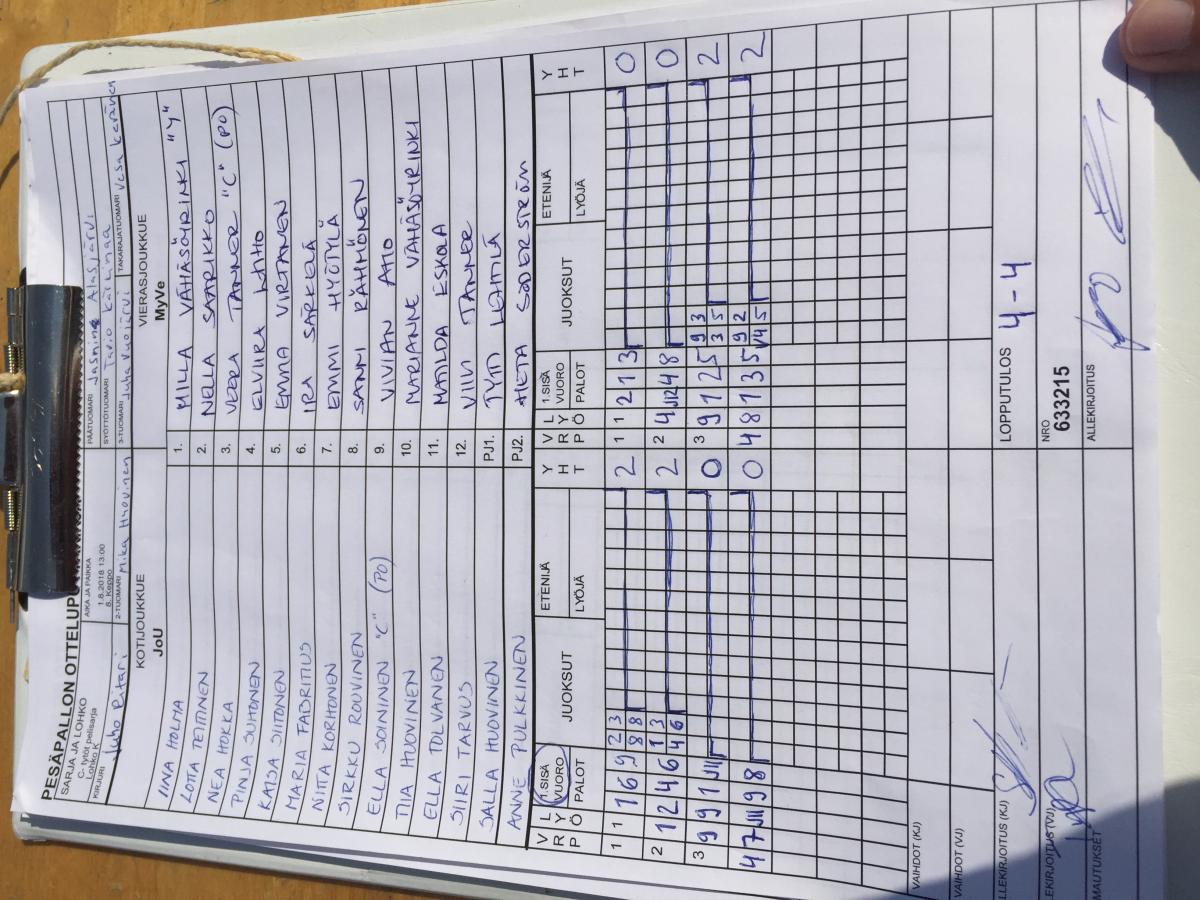 PESÄPALLON OTTELUPU
SARJA JA LOHKO
C- tytöt pelisarja
Lohko K
AIKA JA PAIKKA
1.8.2018 13:00
8. Keppo
PÄÄTUOMARI Jasmine Alasjärvi
SYÖTTÖTUOMARI
KIRJURI Juho Ritari
2-TUOMARI Mika Huovinen
3-TUOMARI Juha Vuojärvi
TAKARAJATUOMARI Vesa
KOTIJOUKKUE
JoU
VIERASJOUKKUE
MyVe
IINA HOLMA 1. MILLA VÄHÄSÖYRINKI "Y"
LOTTA TEITTINEN 2. NELLA SAARIKKO
NEA HOKKA 3. VEERA TANNER "C" (PO)
PINJA SUHONEN 4. ELVIIRA
KAISA SIITONEN 5. EMMA VIRTANEN
MARIA FABRITIUS 6. IRA SÄRKELÄ
NIITA KORHONEN 7. EMMI HYÖTYLÄ
SIRKKU ROUVINEN 8. SANNI RÄHMÖNEN
ELLA SOININEN "C" (PO) 9. VIVIAN AHO
TIIA HUOVINEN 10. MARIANNE VÄHÄSÖYRINKI
ELLA TOLVANEN 11. MATILDA ESKOLA
SIIRI TARVUS 12. VIIVI TANNER
SALLA HUOVINEN PJ1. TYTTI LEHTELÄ
ANNE PULKKINEN PJ2. HETA SÖDERSTRÖM
V R L Y Ö P 1.SISÄ VUORO PALOT JUOKSUT ETENIJÄ LYÖJÄ Y H T V R L Y Ö P 1.SISÄ VUORO PALOT JUOKSUT ETENIJÄ LYÖJÄ Y H T
1 1 1 6 9 2 3 8 8 2 1 1 2 1 3 0
2 1 2 4 6 1 3 4 6 2 2 4 8 0
3 9 9 1 0 3 9 1 2 5 9 3 3 5 2
4 7 9 8 0 4 8 1 3 5 9 2 2
VAIHDOT (KJ)
VAIHDOT (VJ)
LLEKIRJOITUS (KJ)
LOPPUTULOS 4-4
EKIRJOITUS (VJ)
NRO
633215
MAUTUKSET
ALLEKIRJOITUS